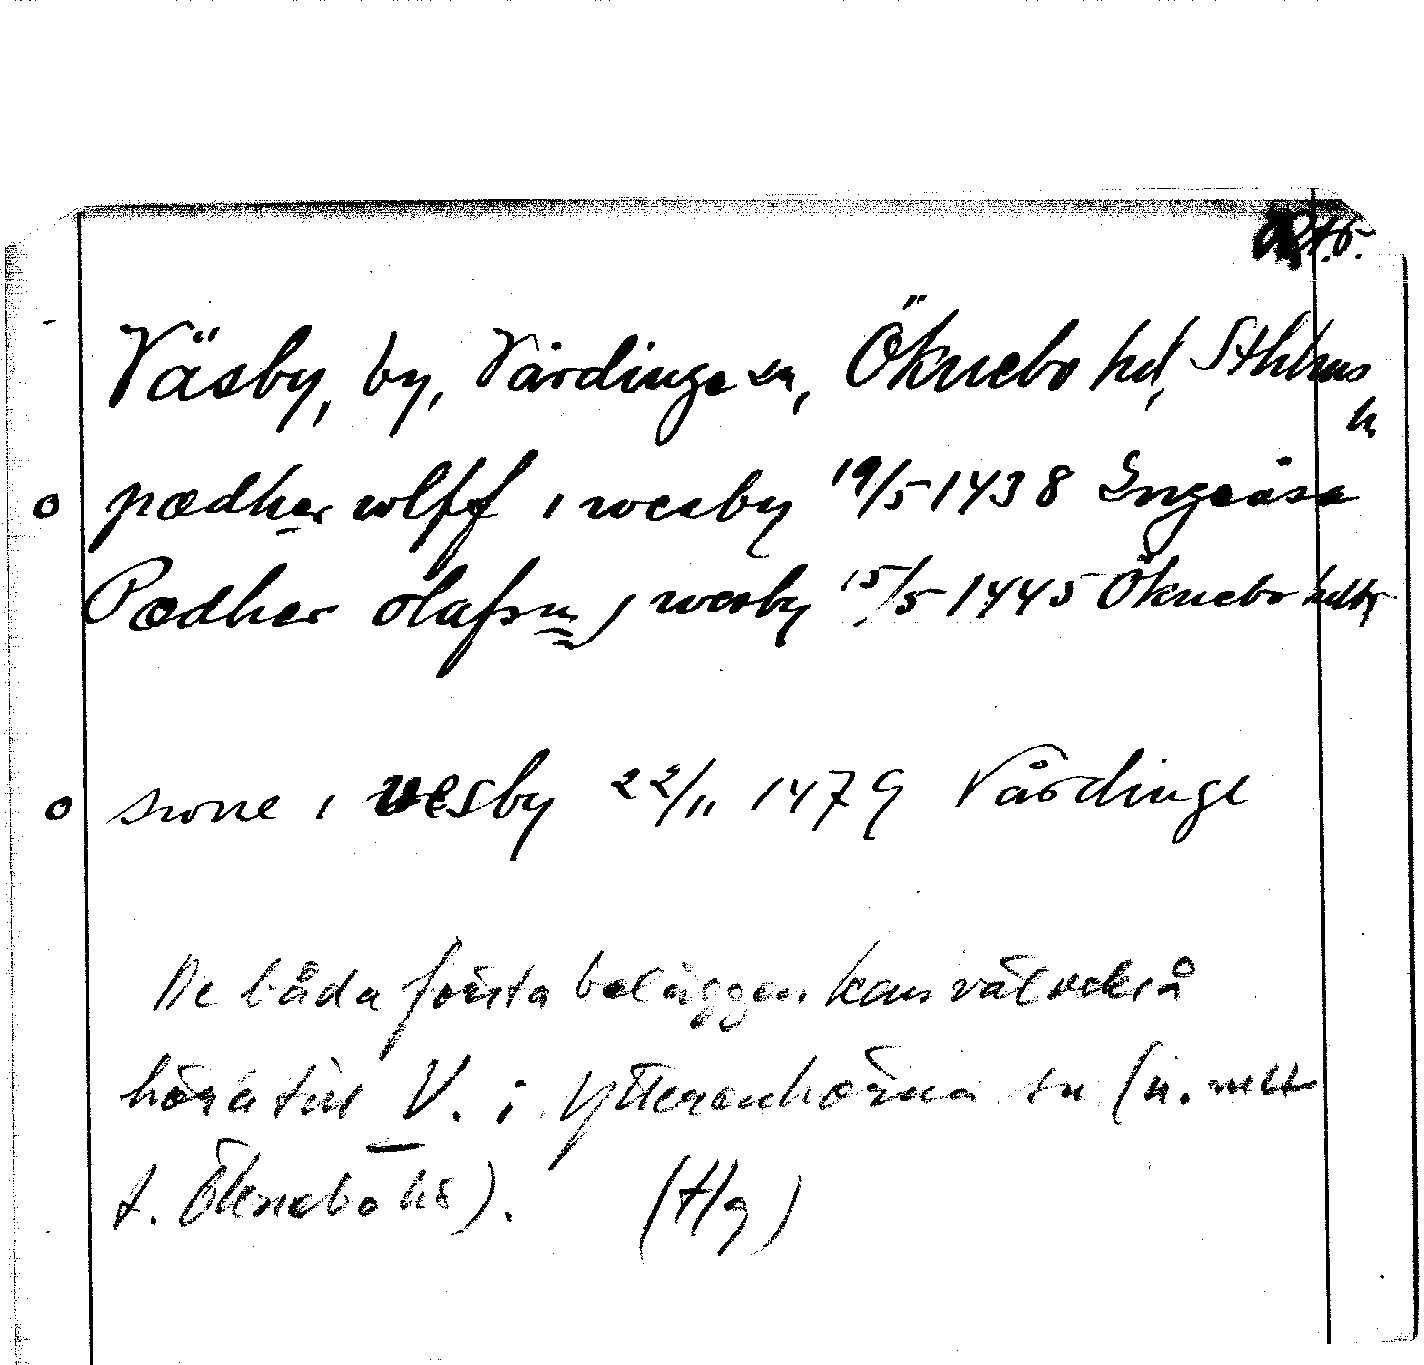 Väsby, by, Vårdinge sn, Öknebo hd, Sthlms
n
pædher wlff i wesby 19/5 1438
Pædher olafsn j wesby 15/5 1445 Öknebo
swne i vesby 22/11 1479 Vårdinge
De båda första beläggen kan väl också
höra till V. i Ytterenhörna sn (u. nett
t. Öknebo hd). (Hg)